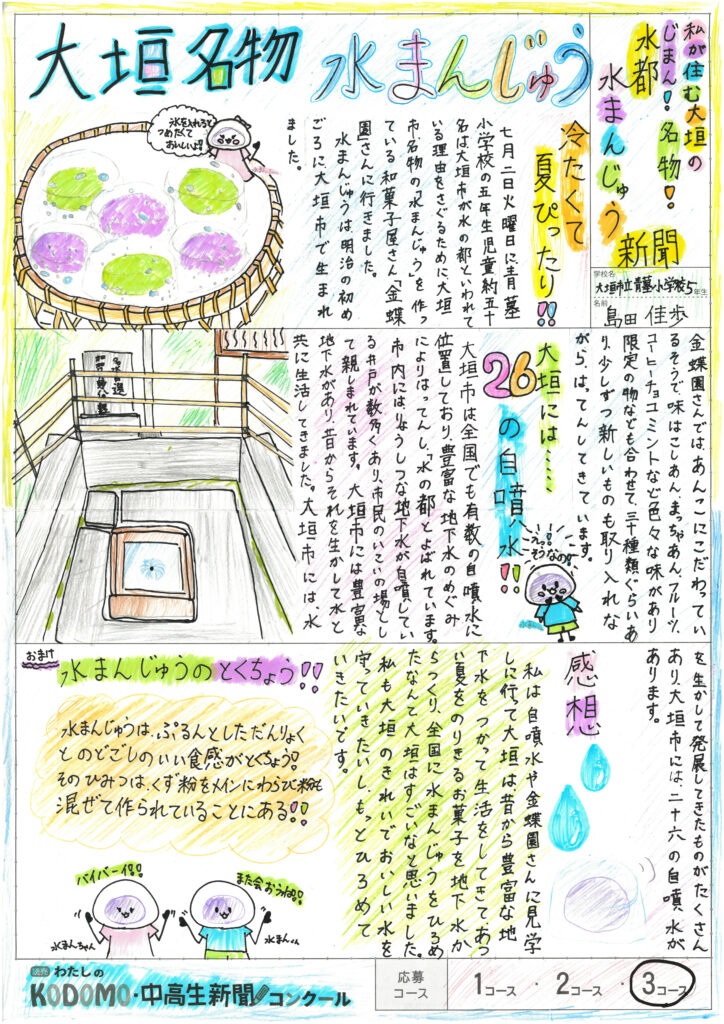 私が住む大垣の
じまん！名物！
水都
水まんじゅう
新聞
学校名
大垣市立青墓小学校5年生
名前
島田 佳歩
大垣名物 水まんじゅう
氷を入れると
つめたくて
おいしいよ!!
冷たくて
夏ぴったり!!
七月二日火曜日に青墓
小学校の五年生児童約五十
名は大垣市が水の都といわれて
いる理由をさぐるために大垣
市名物の「水まんじゅう」を作っ
ている和菓子屋さん「金蝶
園」さんに行きました。
水まんじゅうは明治の初め
ごろに大垣市で生まれ
ました。
金蝶園さんでは、あんこにこだわってい
るそうで味はこしあん、まっちゃあん、フルーツ、
コーヒー、チョコミントなど色々な味があり
限定の物なども合わせて、三十種類ぐらいあ
り、少しずつ新しいものも取り入れな
がら、はってんしてきています。
大垣には……
26の自噴水!!
えっ!!
そうなの!
大垣市は全国でも有数の自噴水に
位置しており豊富な地下水のめぐみ
によりはってんし、「水の都」とよばれています。
市内にはりょうしつな地下水が自噴してい
る井戸が数多くあり、市民のいこいの場とし
て親しまれています。大垣市には豊富な
地下水があり、昔からそれを生かして水と
共に生活してきました。大垣市には、水
を生かして発展してきたものがたくさん
あり、大垣市には、二十六の自噴水が
あります。
感想
私は自噴水や金蝶園さんに見学
しに行って大垣は昔から豊富な地
下水をつかって生活をしてきてあつ
い夏をのりきるお菓子を地下水か
らつくり、全国に水まんじゅうをひろめ
たなんて大垣はすごいなと思いました。
私も大垣のきれいでおいしい水を
守っていきたいし、もっとひろめて
いきたいです。
おまけ
水まんじゅうのとくちょう!!
水まんじゅうは、ぷるんとしただんりょく
とのどごしのいい食感がとくちょう!
そのひみつは、くず粉をメインにわらび粉も
混ぜて作られていることにある!!
バイバーイ!
また会おうね!
水まんちゃん
水まんくん
読売 わたしの
KODOMO・中高生新聞コンクール
応募
コース
1コース・2コース・3コース